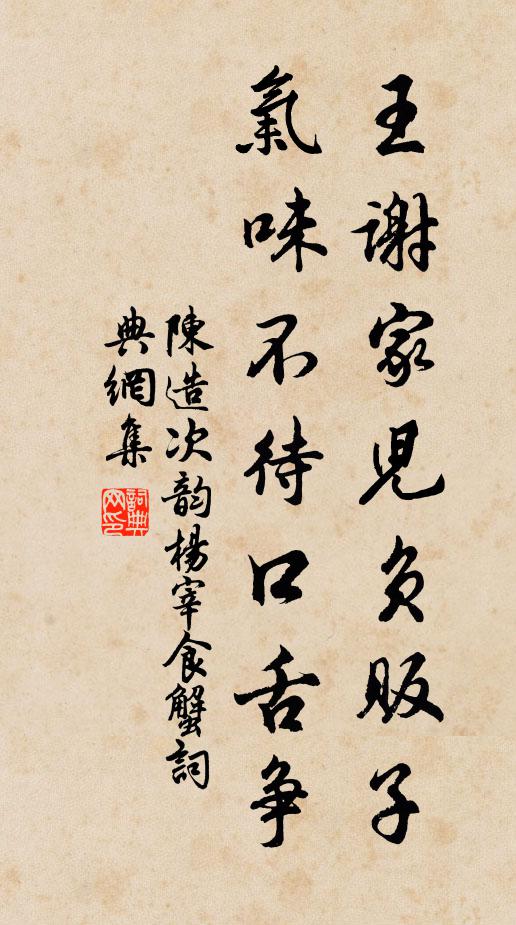 王謝家児負販子
氣味不待口舌争
陳造次韵楊宰食蟹詞
典網集
詞典網印